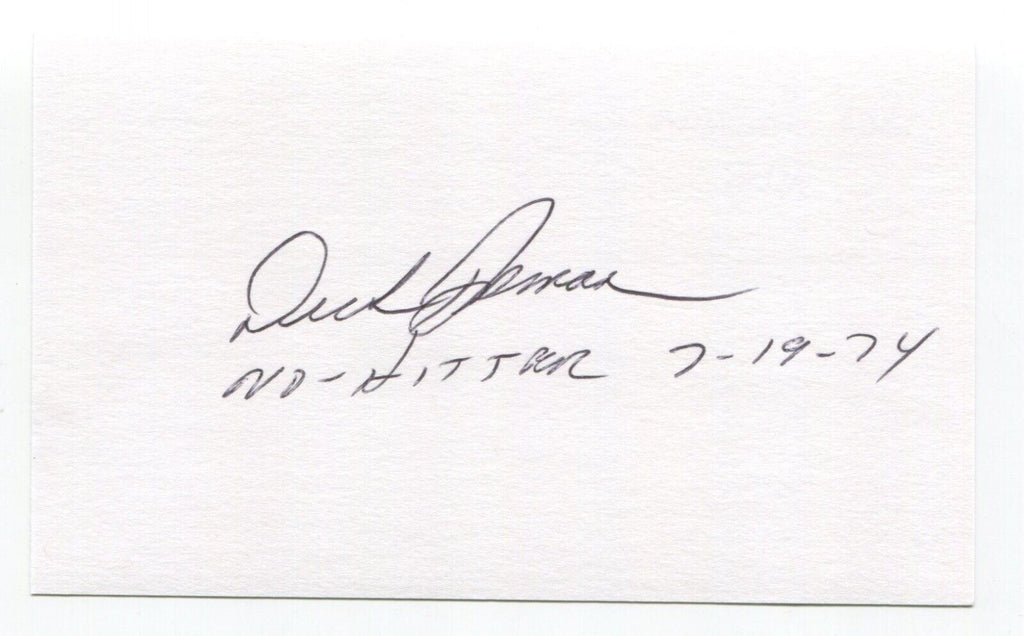 Dick Bosman
NO-HITTER 7-19-74